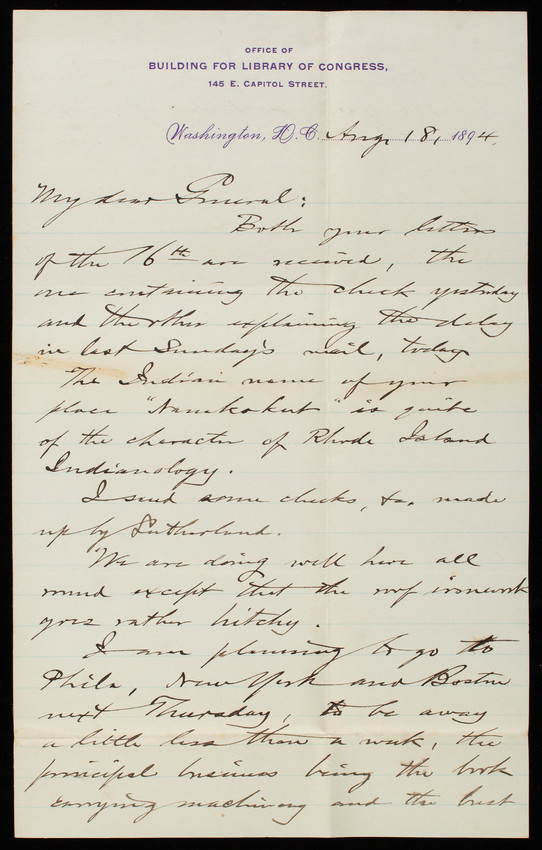 OFFICE OF
BUILDING FOR LIBRARY OF CONGRESS,
145 E. CAPITOL STREET.
Washington, D.C. Aug. 18, 1894.
My dear General:
Both your letters
of the 16th are received, the
one containing the check yesterday
and the other explaining the delay
in last Sunday's mail, today
The Indian name of your
place "Namkokut" is quite
of the character of Rhode Island
Indianology.
I send some checks, &c. made
up by Sutherland.
We are doing well here all
round except that the roof ironwork
goes rather hitchy.
I am planning to go to
Phila, New York and Boston
next Thursday, to be away
a little less than a week, the
principal business being the book
carrying machinery and the bust